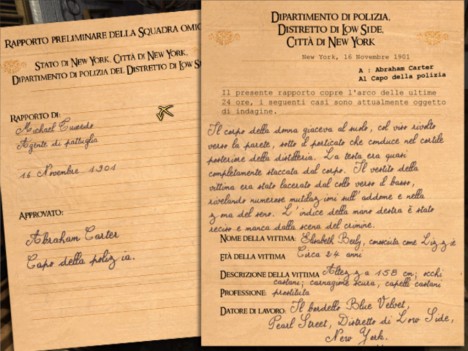 RAPPORTO PRELIMINARE DELLA SQUADRA OMIC
STATO DI NEW YORK, CITTÀ DI NEW YORK,
DIPARTIMENTO DI POLIZIA DEL DISTRETTO DI LOW S
RAPPORTO DI:
Michael
Agente di pattuglia
16 Novembre, 1901
APPROVATO:
Abraham Carter
Capo della polizia.
DIPARTIMENTO DI POLIZIA,
DISTRETTO DI LOW SIDE,
CITTÀ DI NEW YORK
New York, 16 Novembre 1901
A : Abraham Carter
Al Capo della polizia
Il presente rapporto copre l'arco delle ultime
24 ore, i seguenti casi sono attualmente oggetto
di indagine.
Il corpo della donna giaceva al suolo, col viso rivolto
verso la parete, sotto il porticato che conduce nel cortile
posteriore della distilleria. La testa era quasi
completamente staccata dal corpo. Il vestito della
vittima era stato lacerato dal collo verso il basso,
rivelando numerose mutilazioni sull'addome e nella
zona del seno. L'indice della mano destra è stato
reciso e manca dalla scena del crimine.
NOME DELLA VITTIMA: Elisabeth conosciuta come Lizzie
ETÀ DELLA VITTIMA: Circa 24 anni
DESCRIZIONE DELLA VITTIMA: Altezza 158 cm; occhi
castani; carnagione scura, capelli castani
PROFESSIONE: prostituta
DATORE DI LAVORO: Il bordello Blue Velvet,
Pearl Street, Distretto di Low Side,
New York.